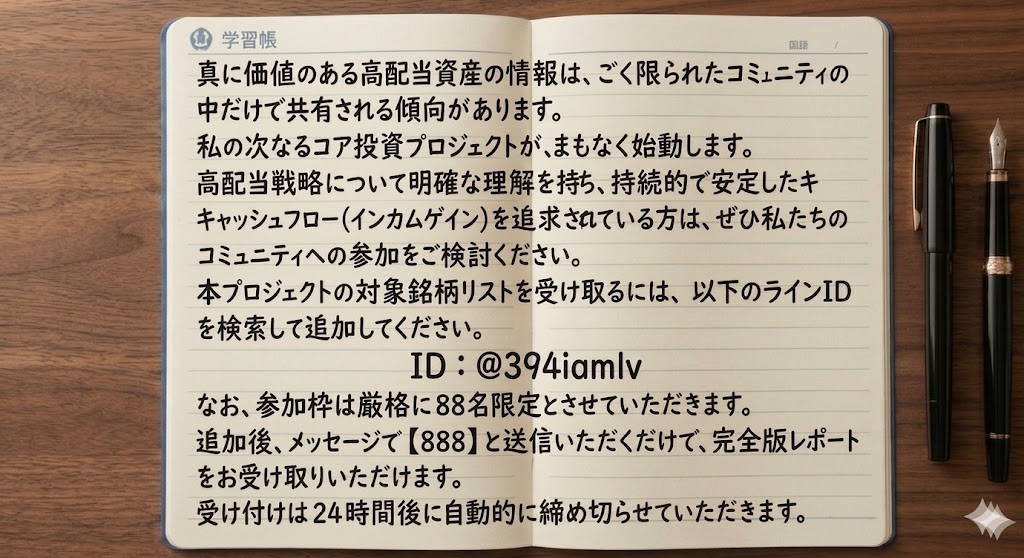 学習帳
国語 /
真に価値のある高配当資産の情報は、ごく限られたコミュニティの
中だけで共有される傾向があります。
私の次なるコア投資プロジェクトが、まもなく始動します。
高配当戦略について明確な理解を持ち、持続的で安定したキ
キャッシュフロー(インカムゲイン)を追求されている方は、ぜひ私たちの
コミュニティへの参加をご検討ください。
本プロジェクトの対象銘柄リストを受け取るには、以下のラインID
を検索して追加してください。
ID:@394iamlv
なお、参加枠は厳格に88名限定とさせていただきます。
追加後、メッセージで【888】と送信いただくだけで、完全版レポート
をお受け取りいただけます。
受け付けは24時間後に自動的に締め切らせていただきます。